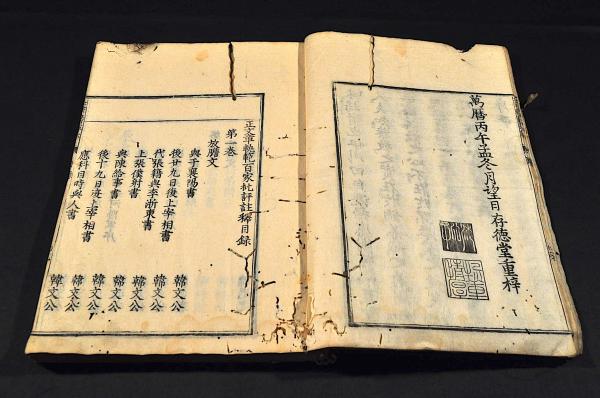 萬曆丙午孟冬月望日存德堂重梓
正文章軌範百家批評註釋目錄
第一卷
放膽文
與于襄陽書 韓文公
後廿九日復上宰相書 韓文公
代張籍與李浙東書 韓文公
上張僕射書 韓文公
與陳給事書 韓文公
後十九日復上宰相書 韓文公
應科目時與人書 韓文公